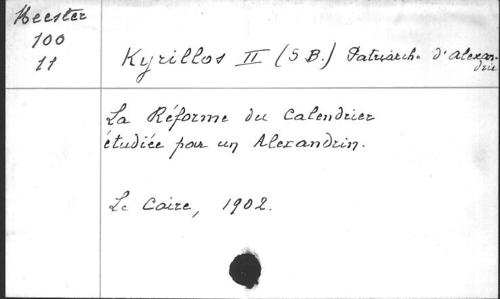 Meester
100
11
Kyrillos II (S B.) Patriarche d'Alexan-
drie
La Réforme du Calendrier
étudiée par un Alexandrin.
Le Caire, 1902.